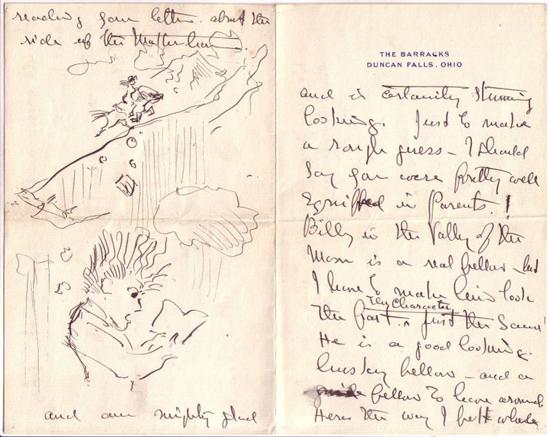 reading your letter about the
ride up the Matterhorn
and am mighty glad
THE BARRACKS
DUNCAN FALLS, OHIO
and is certainly stunning
looking. Just to make
a rough guess – I should
say you were pretty well
equipped in Parents!
Billy in the Valley of the
Moon is a real fellow – but
I have to make him look
The Character
the part. just the same
He is a good looking
husky fellow – and a
fellow to have around.
Heres the way I felt when